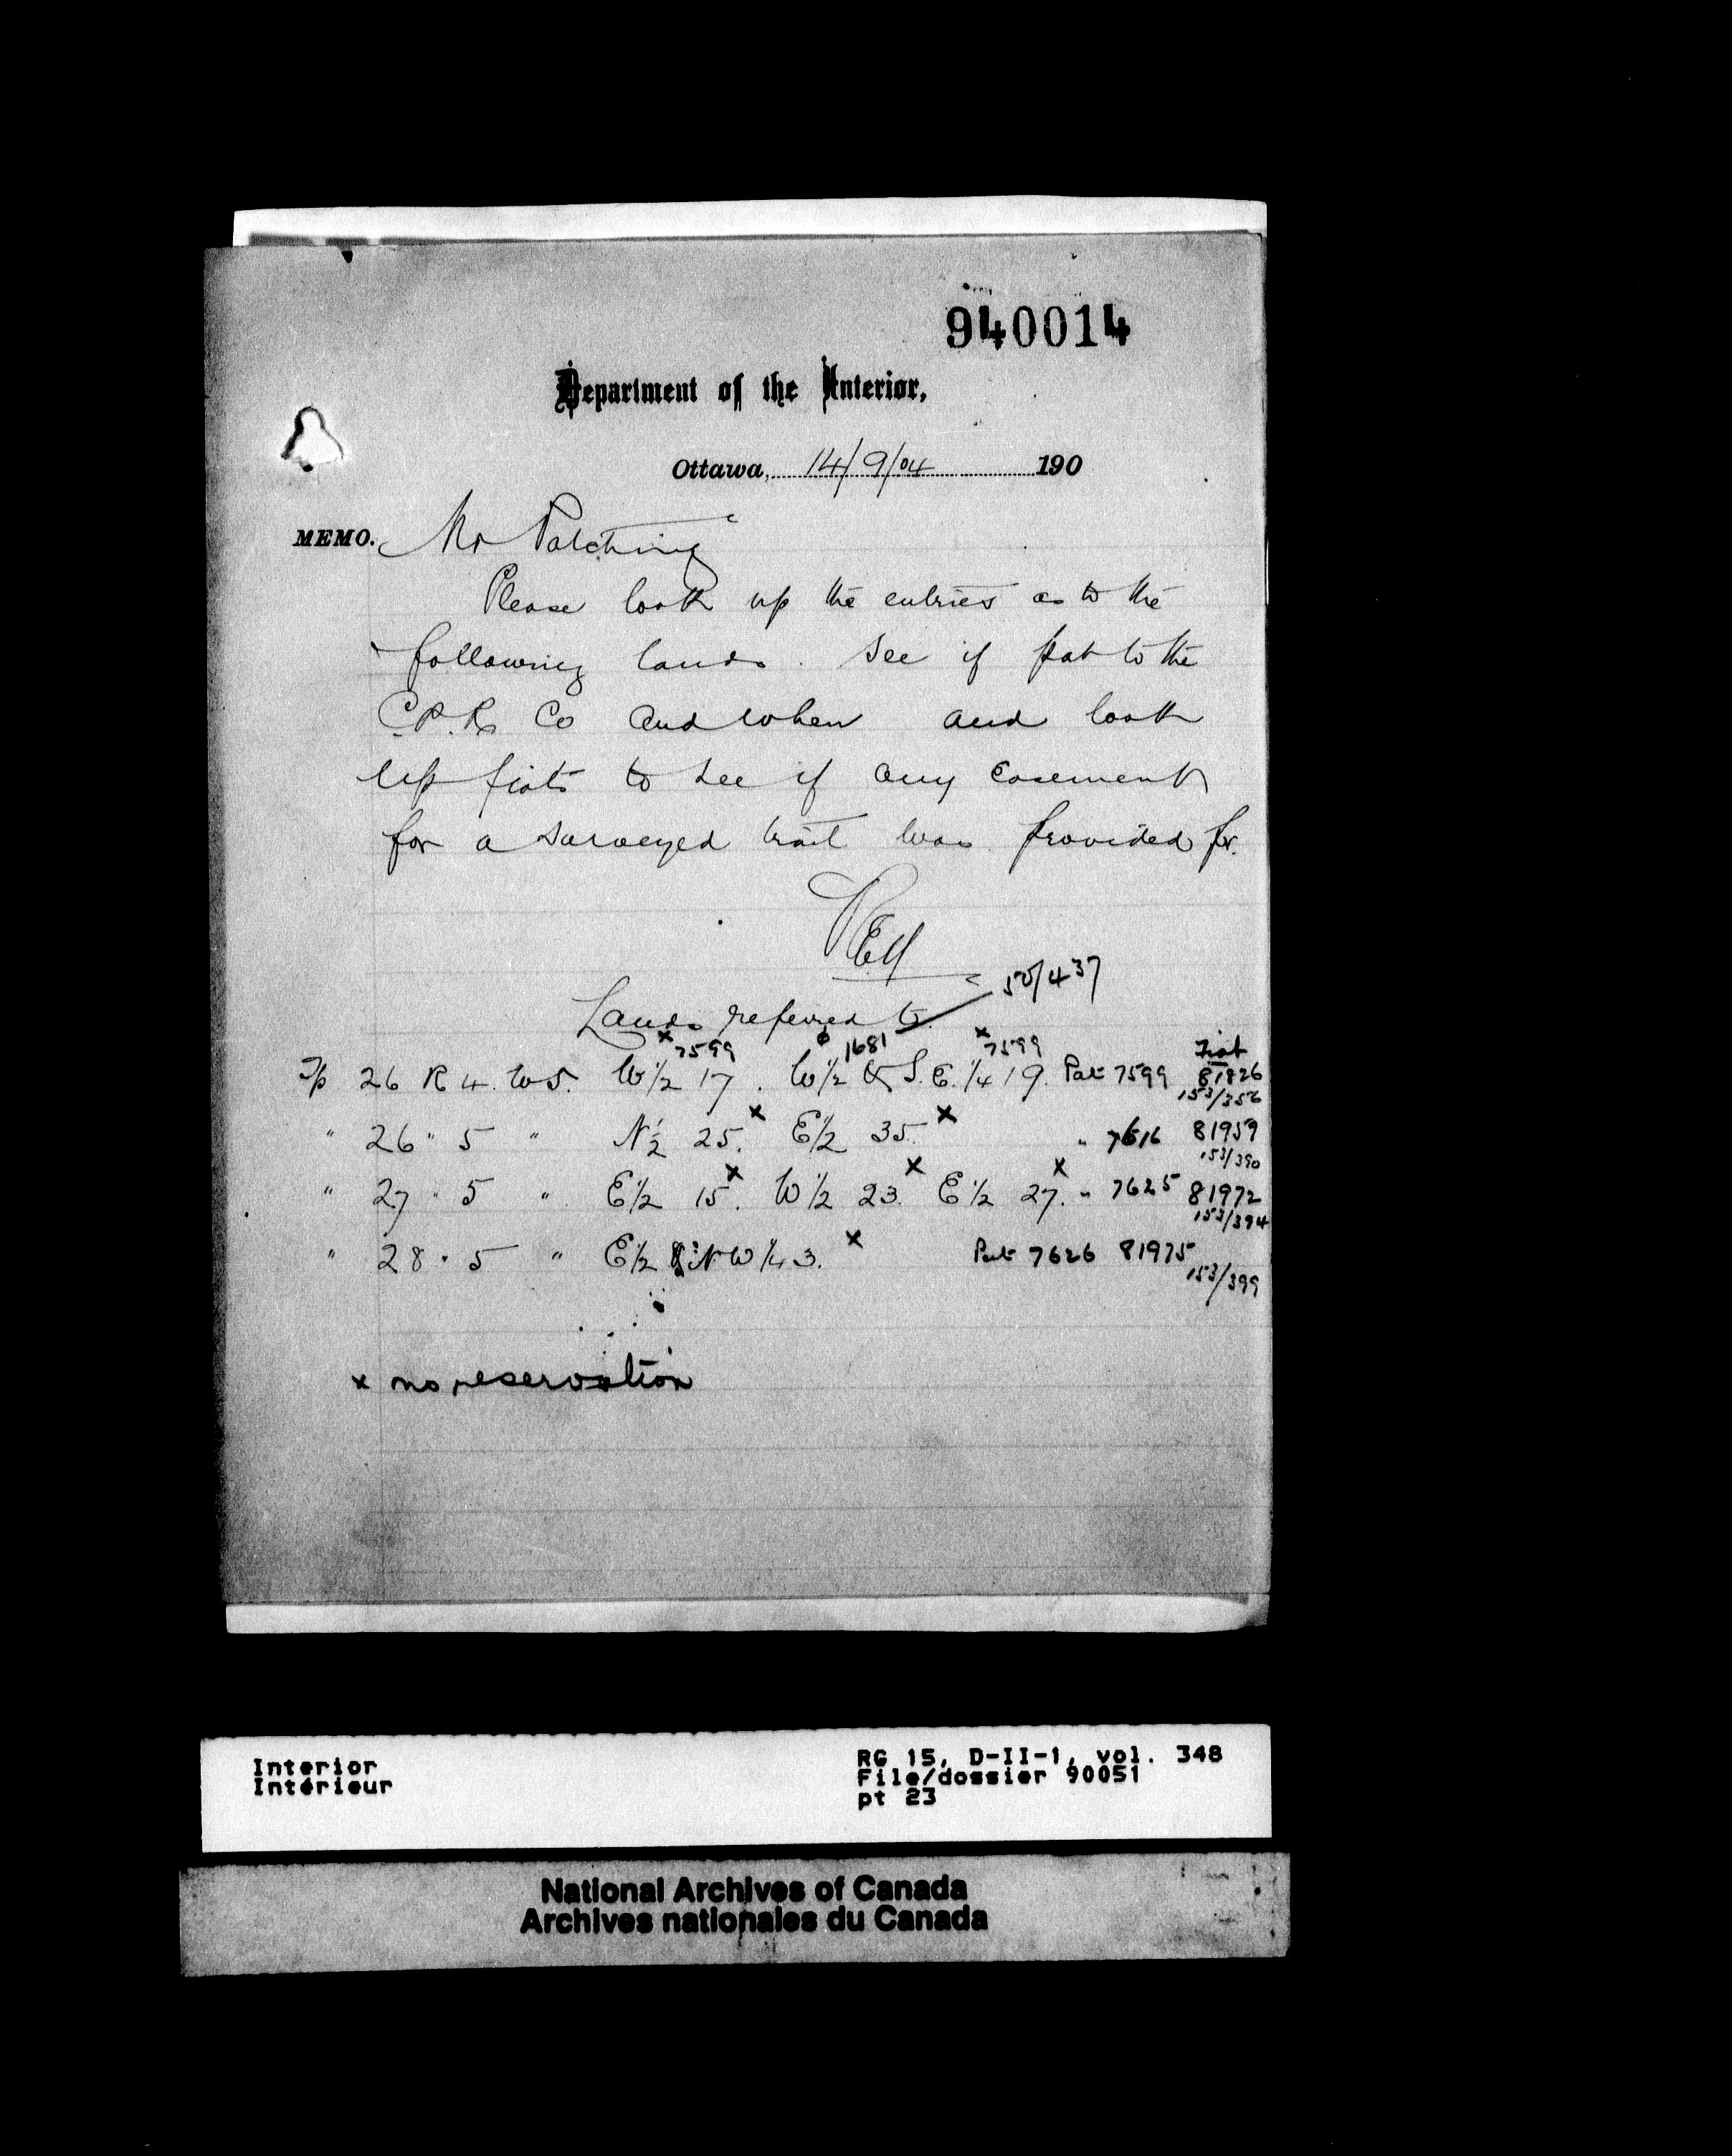 940014
Department of the Interior,
Ottawa, 14/9/04 190
MEMO. Mr Patching
Please look up the entries as to the
following lands. See if pat to the
C.P.R. Co and when and look
up fiats to see if any easement
for a surveyed trail was provided for.
50/437
Lands referred to
x 7599 1681 x 7599 Fiat
Tp 26 R 4. W5. W½ 17. W½ & S.E. ¼ 19. Pat 7599 81826
153/356
" 26 " 5 " N½ 25. x E½ 35. x " 7616 81959
153/390
" 27 " 5 " E½ 15. x W½ 23. x E½ 27. x " 7625 81972
153/394
" 28 " 5 " E½ & NW ¼ 3. x Pat 7626 81975
153/399
x no reservation
Interior
Intérieur
RG 15, D-II-1, vol. 348
File/dossier 90051
pt 23
National Archives of Canada
Archives nationales du Canada